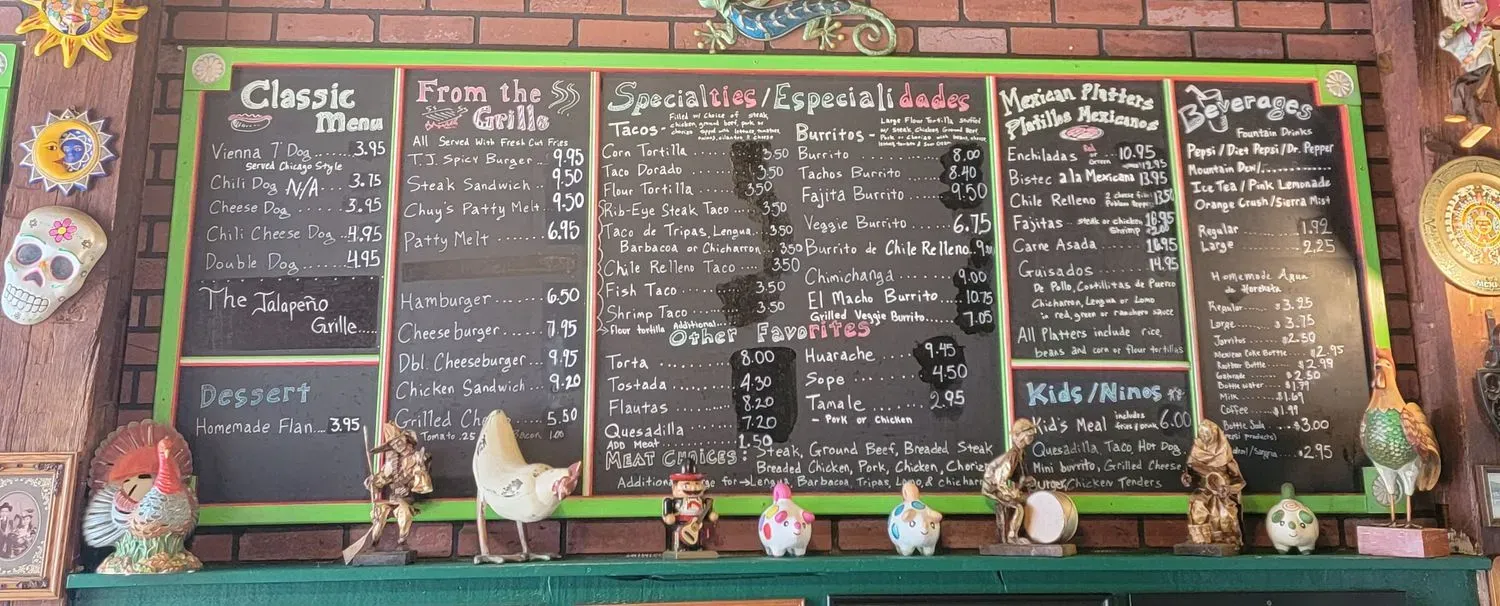 Classic
Menu
Vienna 7" Dog........3.95
Served Chicago Style
Chili Dog N/A...3.75
Cheese Dog.....3.95
Chili Cheese Dog..4.95
Double Dog.......4.95
The Jalapeño
Grille....
Dessert
Homemade Flan...3.95
From the
Grille
All Served With Fresh Cut Fries
T.J. Spicy Burger..9.95
Steak Sandwich..9.50
Chuy's Patty Melt.9.50
Patty Melt......6.95
Hamburger.......6.50
Cheeseburger....7.95
Dbl. Cheeseburger..9.95
Chicken Sandwich..9.20
Grilled 5.50
Tomato .25 Bacon 1.00
Specialties/Especialidades
Tacos-
Filled w/ Choice of steak,
chicken, ground beef, pork or
Corn Tortilla....3.50
Taco Dorado.....3.50
Flour Tortilla...3.50
Rib-Eye Steak Taco...3.50
Taco de Tripas, Lengua,
Barbacoa or Chicharron 3.50
Chile Relleno Taco....3.50
Fish Taco......3.50
Shrimp Taco....3.50
Flour tortilla Additional
Burritos-
Large Flour Tortilla Stuffed
w/ Steak Chicken Ground Beef
Burrito.........8.00
Tachos Burrito....8.40
Fajita Burrito....9.50
Veggie Burrito....6.75
Burrito de Chile Relleno.
Chimichanga.....9.00
El Macho Burrito...10.75
Grilled Veggie Burrito...7.05
Other Favorites
Torta.........8.00
Tostada.......4.30
Flautas.......8.20
Quesadilla....7.20
ADD Meat.......1.50
Huarache......9.45
Sope..........4.50
Tamale........2.95
- Pork or Chicken
MEAT CHOICES: Steak, Ground Beef, Breaded Steak
Breaded Chicken, Pork, Chicken, Chorizo
for Lengua, Barbacoa, Tripas, Lomo, & chicharron
Mexican Platters
Platillos Mexicanos
Enchiladas Red or Green 10.95
12.95
Bistec a la Mexicana 13.95
Chile Relleno 13.50
Fajitas steak or chicken 16.95
shrimp
Carne Asada....16.95
Guisados......14.95
De Pollo, Costillitas de Puerco
Chicharron, Lengua or Lomo
in red, green or ranchero sauce
All Platters include rice,
beans and corn or flour tortillas
Kids/Ninos
Kid's Meal includes fries & drink 6.00
Quesadilla, Taco, Hot Dog,
Mini burrito, Grilled Cheese
Burger, Chicken Tenders
Beverages
Fountain Drinks
Pepsi/Diet Pepsi/Dr. Pepper
Mountain Dew/...........
Ice Tea/Pink Lemonade
Orange Crush/Sierra Mist
Regular.........1.92
Large...........2.25
Homemade Agua
de Horchata
Regular......$3.25
Large......$3.75
Jarritos.....$2.50
Mexican Coke Bottle....$2.95
Rootbeer Bottle....$2.99
Gatorade.....$2.50
Bottle water.....$1.79
Milk.......$1.69
Coffee......$1.99
Bottle Soda....$3.00
(Pepsi products)
Sangria....$2.95